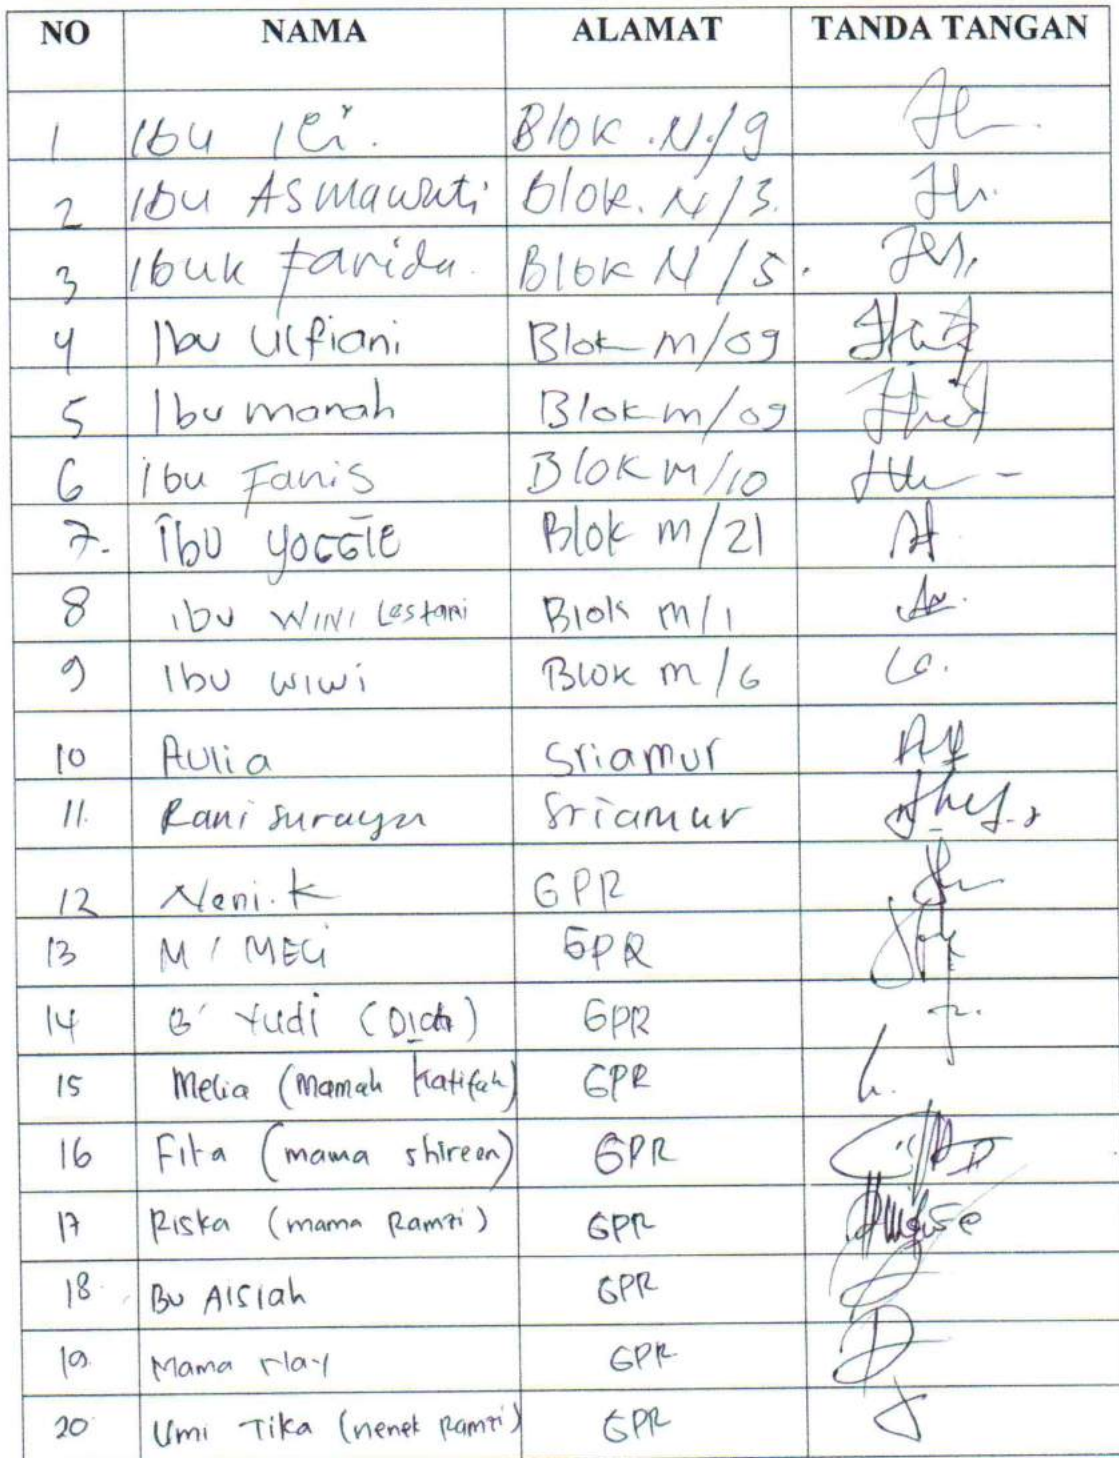 NO NAMA ALAMAT TANDA TANGAN
1 Ibu Blok .N./9
2 Ibu Asmawati Blok. N/3.
3 Ibuk Farida. Blok N/5.
4 Ibu Ulfiani Blok m/09
5 Ibu manah Blok m/09
6 ibu Fanis Blok M/10
7. Ibu YOGGIE Blok m/21
8 ibu WINI Lestari Blok m/1
9 Ibu wiwi Blok m/6
10 Aulia Sriamur
11. Rani Suraya Sriamur
12 Neni. K GPR
13 M / MEGI GPR
14 B' Yudi GPR
15 Melia (Mamah Katifah) GPR
16 Fita (mama shireen) GPR
17 Riska (mama Ramzi) GPR
18. Bu AISIAH GPR
19. Mama GPR
20 Umi Tika (nenek Ramzi) GPR